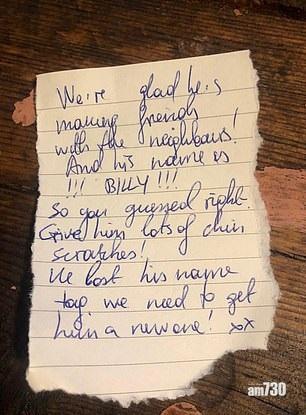 We're glad he's
making friends
with the neighbours!
And his name is
!!! BILLY !!!
So you guessed right.
Give him lots of chin
scratches!
He lost his name
tag we need to get
him a new one! xx
am730